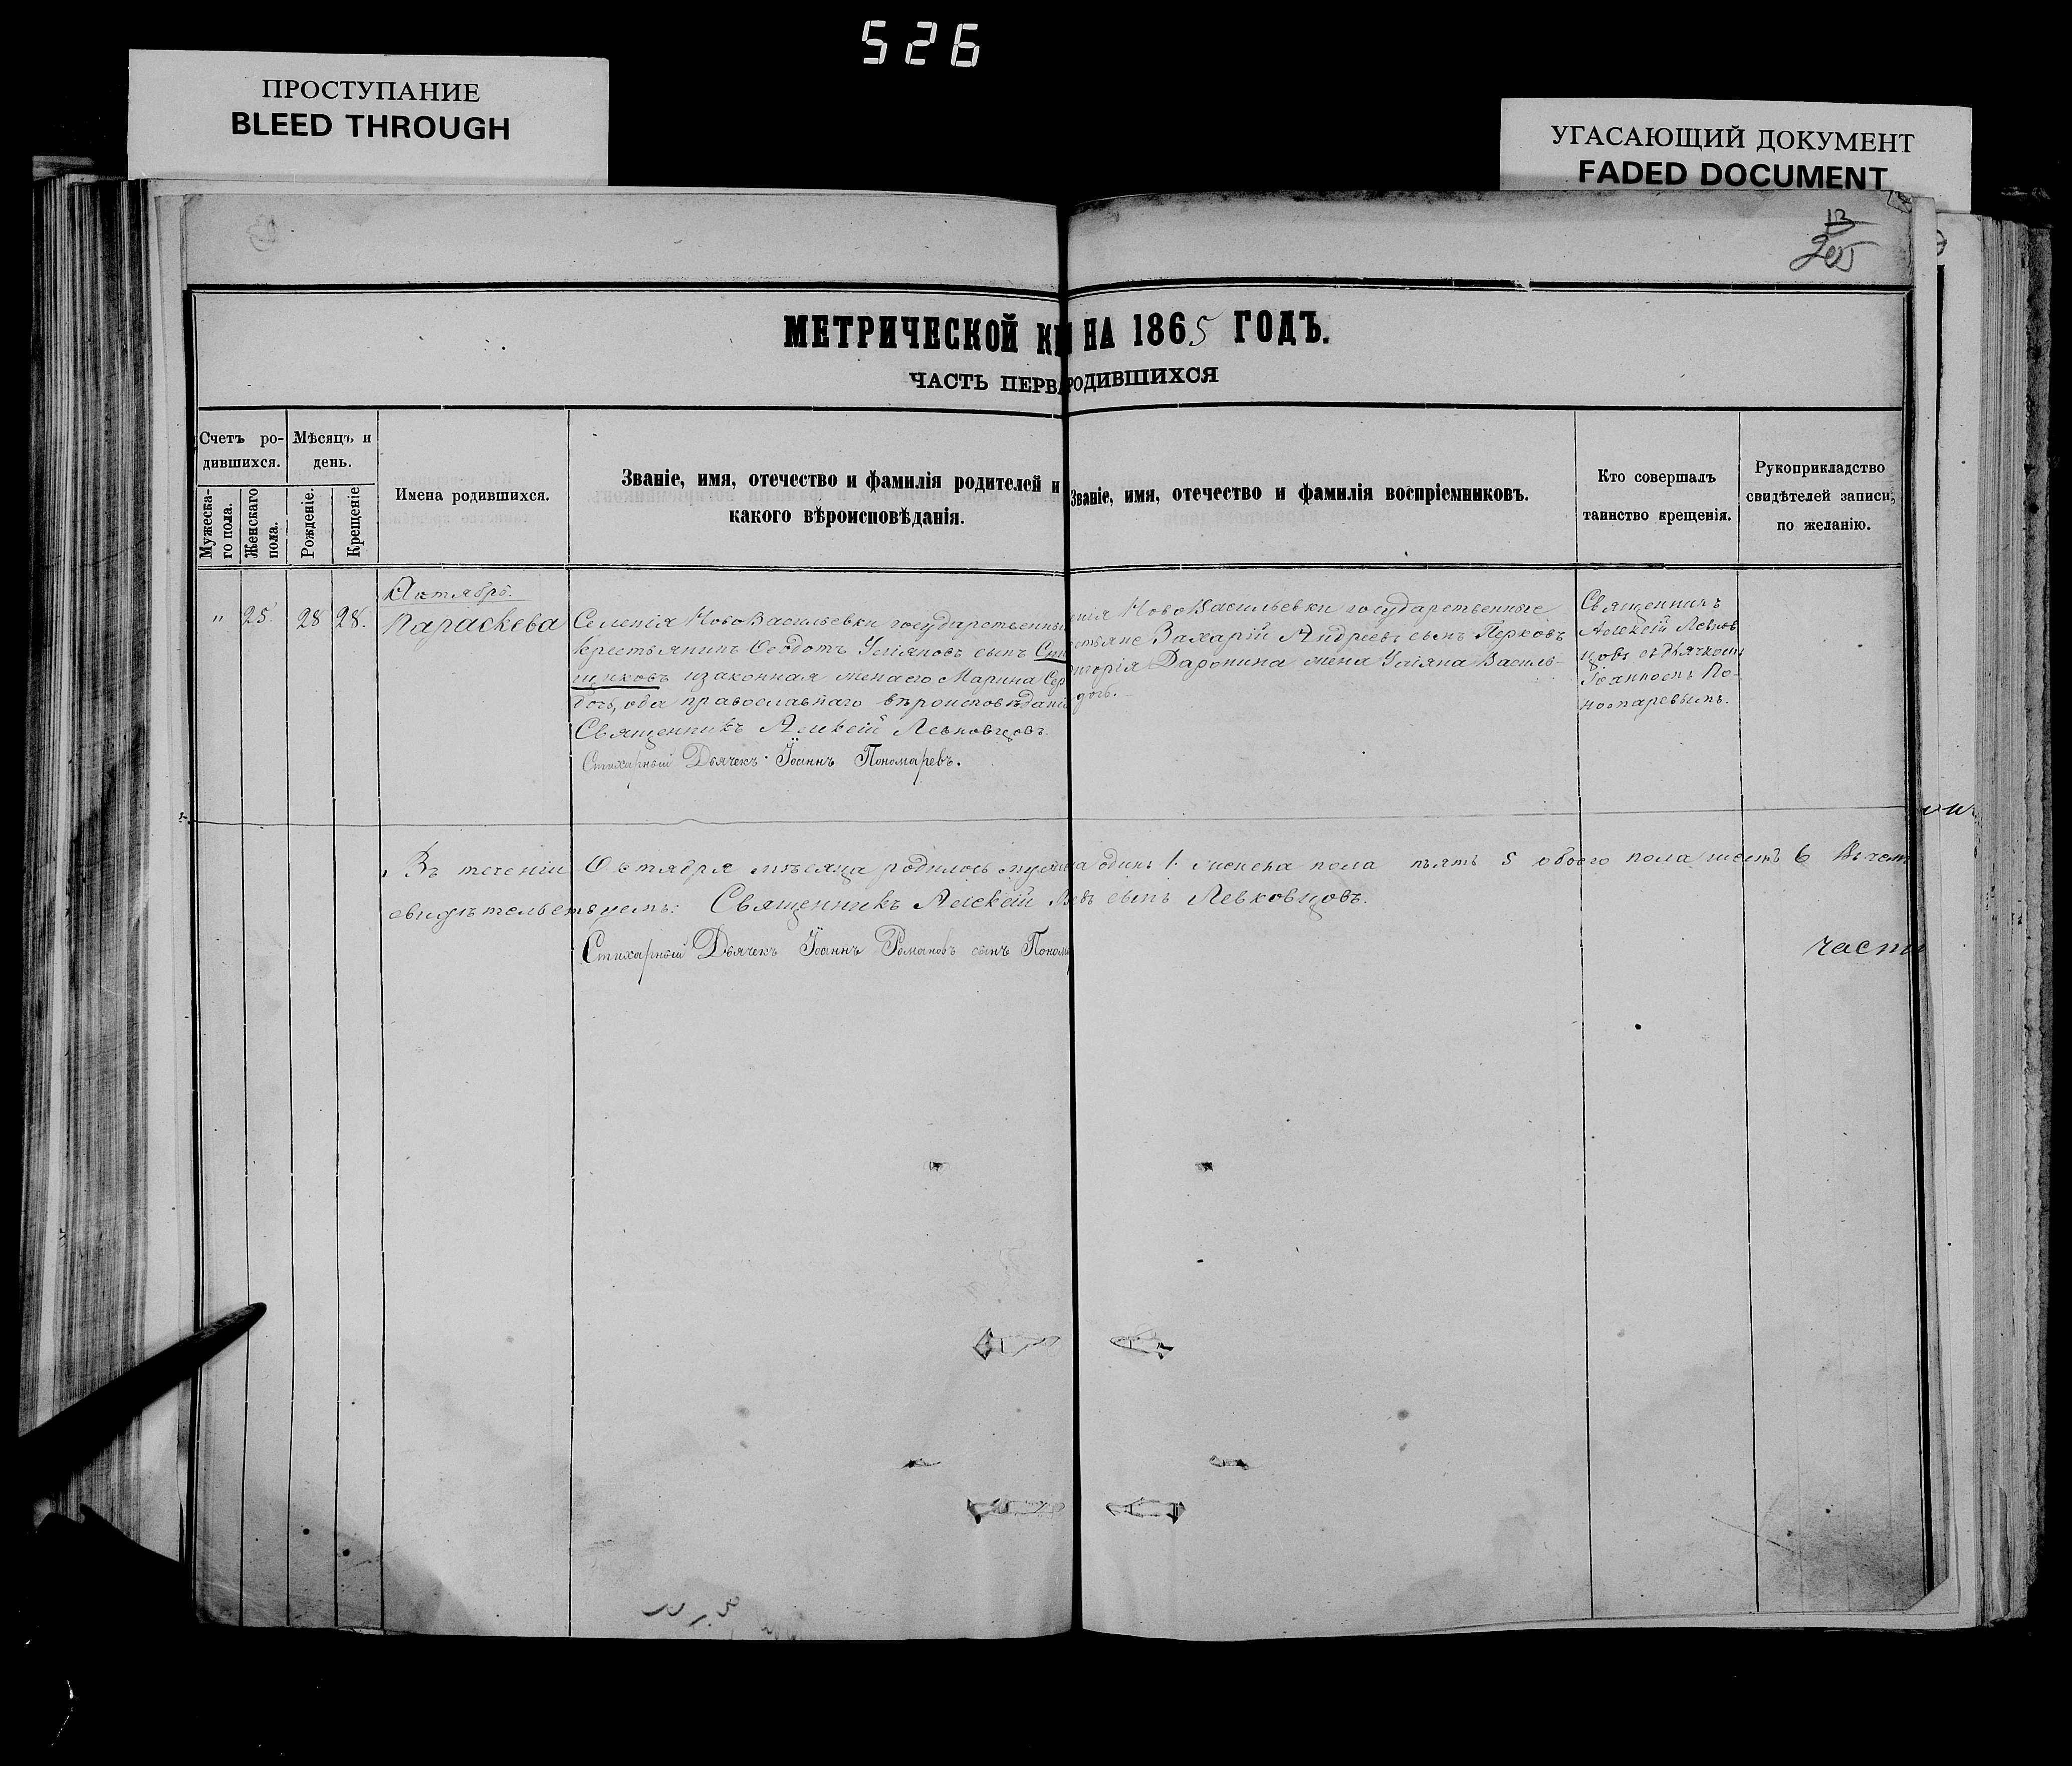 526
ПРОСТУПАНИЕ
BLEED THROUGH
УГАСАЮЩИЙ ДОКУМЕНТ
FADED DOCUMENT
13
МЕТРИЧЕСКОЙ КН НА 1865 ГОДЪ.
ЧАСТЬ ПЕРВА РОДИВШИХСЯ
Счетъ ро-
дившихся.
Мужеска-
го пола.
Женскаго
пола.
Мѣсяцъ и
день.
Рожденіе.
Крещеніе
Имена родившихся.
Званіе, имя, отечество и фамилія родителей и
какого вѣроисповѣданія.
Званіе, имя, отечество и фамилія воспріемниковъ.
Кто совершалъ
таинство крещенія.
Рукоприкладство
свидѣтелей записи,
по желанію.
Октябрь.
" 25. 28 28. Параскева
Селенія НовоВасильевки государственны
крестьянинъ Ѳеодотъ Уліяновъ сынъ
щиковъ и законная жена его Марина Сер
дочь, оба православнаго вѣроисповѣдані
Священникъ Алексій Левковцовъ.
Стихарный Дьячекъ Іоаннъ Пономаревъ.
нія НовоВасильевки государственные
стьяне Захарій Андреевъ сынъ Перковъ
жена Уліяна Василь-
дочь.
Священникъ
Алексій Левков
цовъ съ дьячкомъ
Іоанномъ По-
номаревымъ.
Въ теченіи Октября мѣсяца родилось одинъ 1. женска пола пять 5 обоего пола шесть 6 въ чемъ
свидѣтельствуемъ: Священникъ Алексій Левъ сынъ Левковцовъ.
Стихарный Дьячекъ Іоаннъ Романовъ сынъ Поном
части